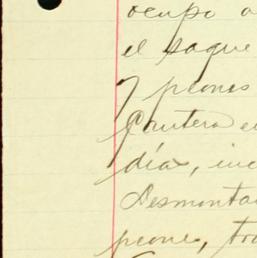 ocupo a
el saque
7 peones
Cantera e
día, inc
Desmonta
peones, tra